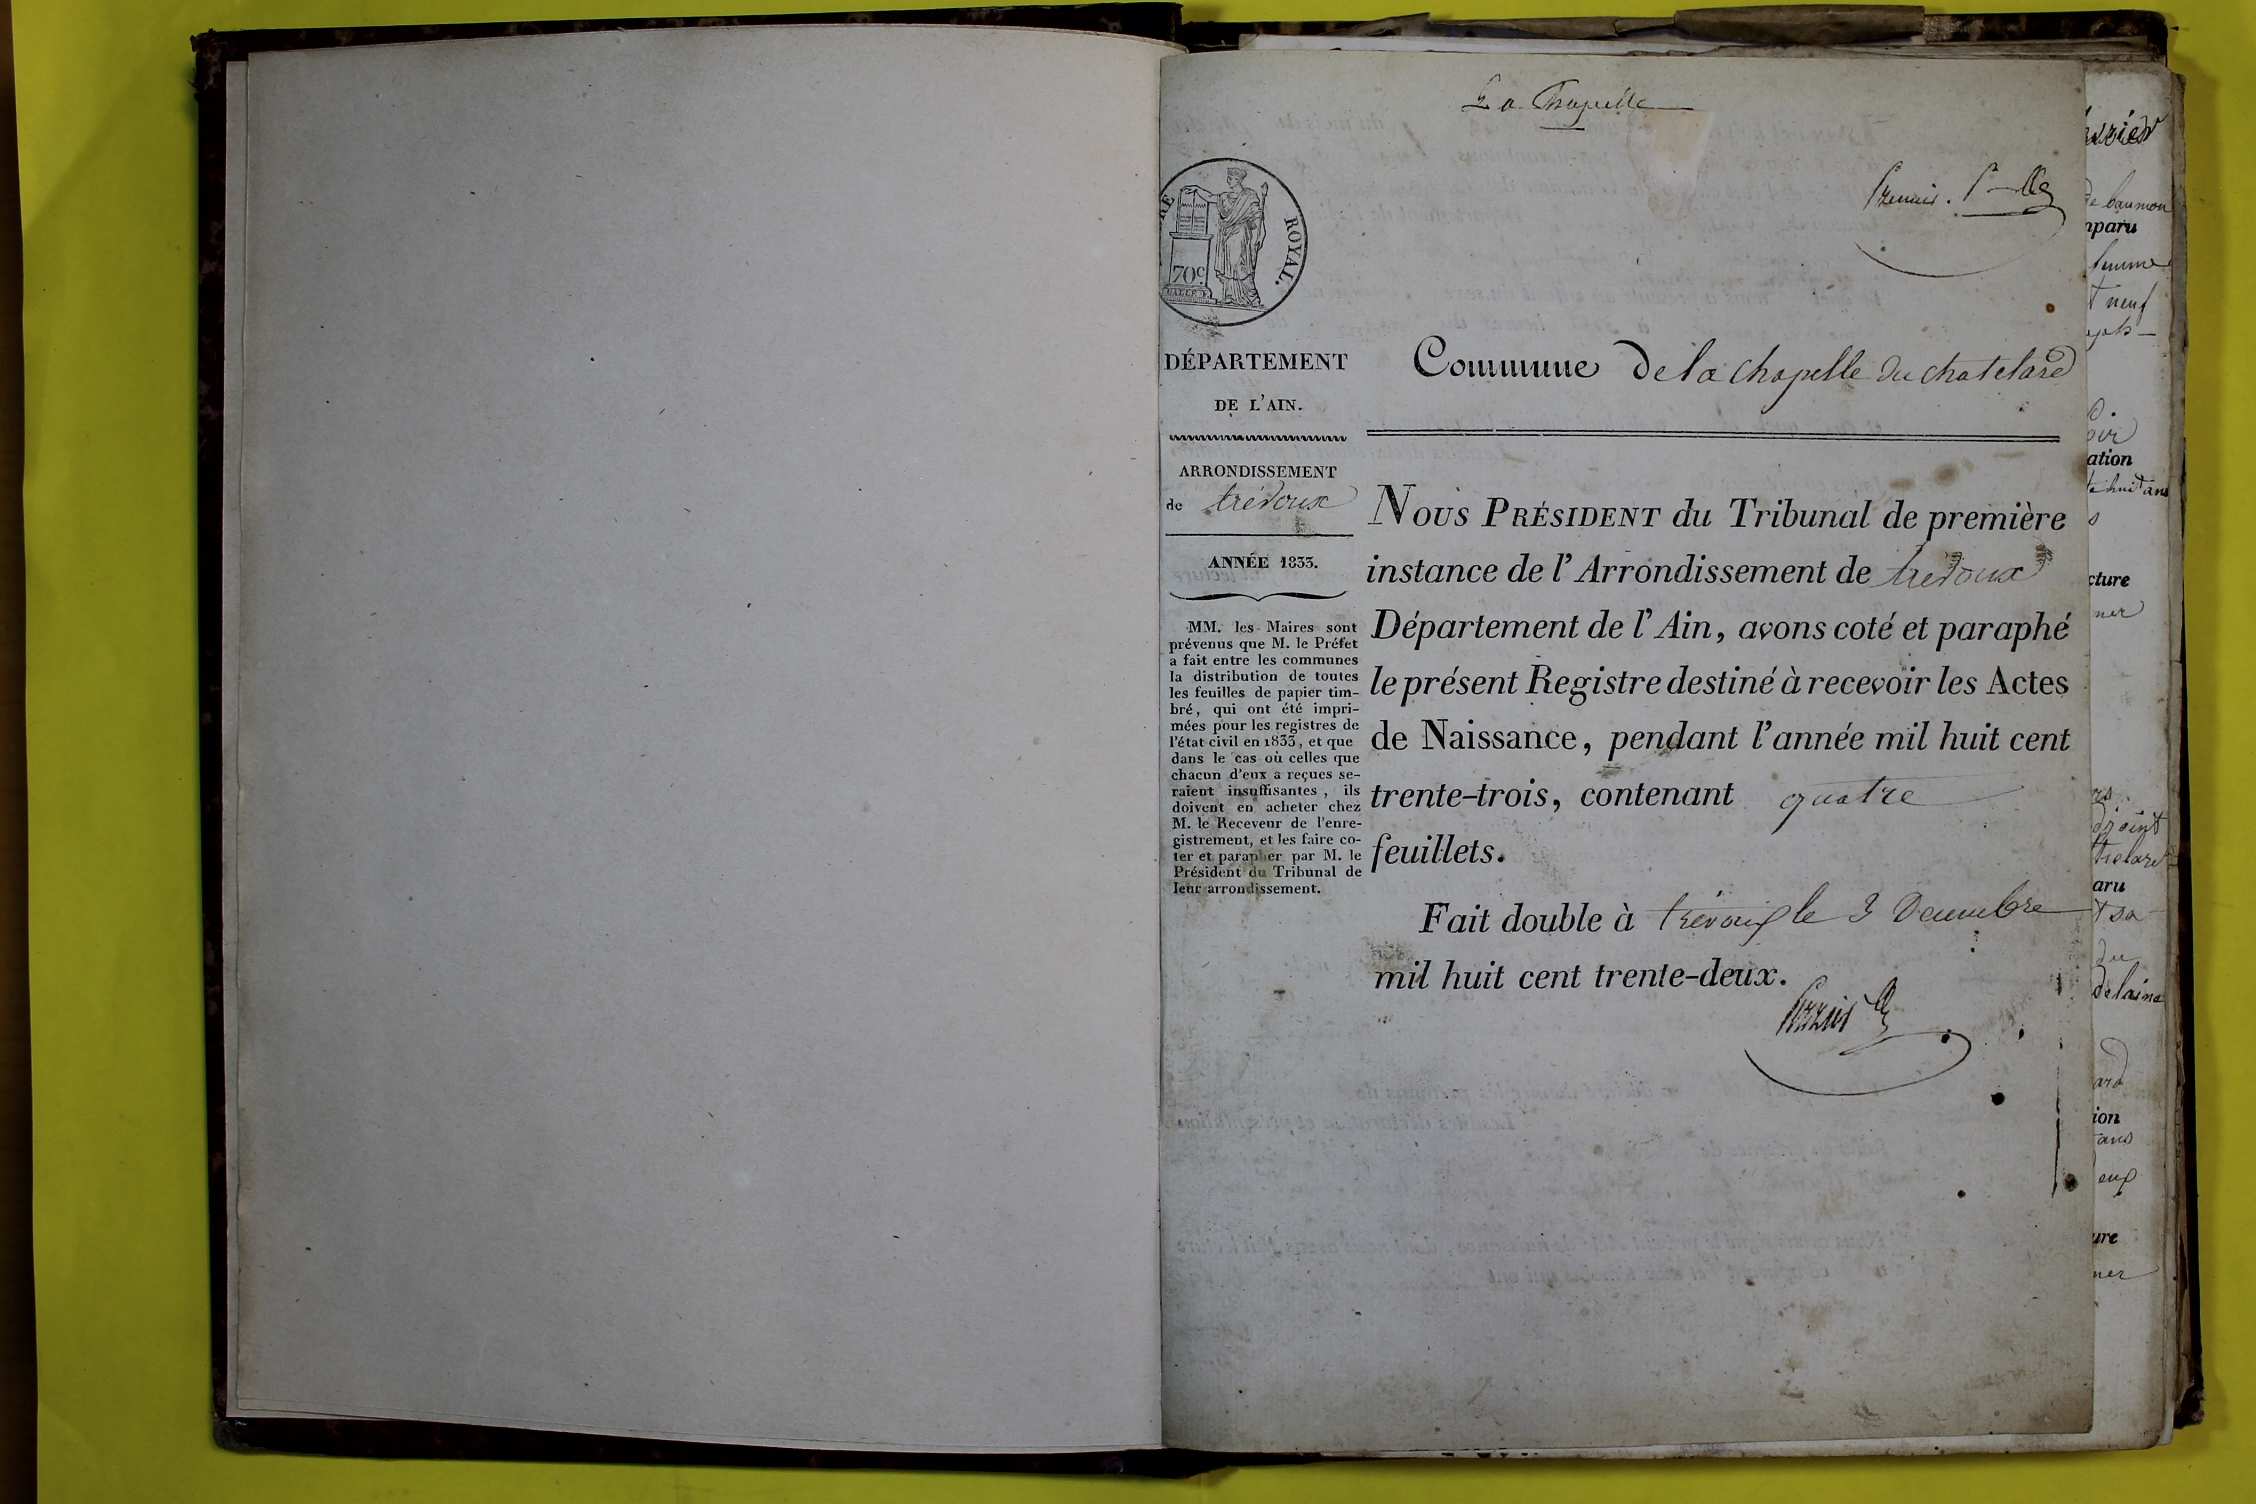 La Chapelle
ROYAL.
70c.
DÉPARTEMENT
DE L'AIN.
ARRONDISSEMENT
de trévoux
ANNÉE 1833.
MM. les Maires sont
prévenus que M. le Préfet
a fait entre les communes
la distribution de toutes
les feuilles de papier tim-
bré, qui ont été impri-
mées pour les registres de
l'état civil en 1833, et que
dans le cas où celles que
chacun d'eux a reçues se-
raient insuffisantes, ils
doivent en acheter chez
M. le Receveur de l'enre-
gistrement, et les faire co-
ter et parapher par M. le
Président du Tribunal de
leur arrondissement.
Commune de la chapelle du chatelard
NOUS PRÉSIDENT du Tribunal de première
instance de l'Arrondissement de trévoux
Département de l'Ain, avons coté et paraphé
le présent Registre destiné à recevoir les Actes
de Naissance, pendant l'année mil huit cent
trente-trois, contenant quatre
feuillets.
Fait double à trévoux le 3 Decembre
mil huit cent trente-deux.
mparu
femme
t neuf
ation
te huit ans
cture
ner
djoint
telard
aru
t sa
du
ard
ion
ans
eux
ure
ner